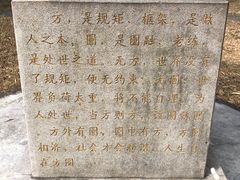 方，是规矩、框架，是做
人之本，圆，是圆融、老练，
是处世之道。无方，世界没有
了规矩，便无约束；无圆，世
界负荷太重，将不能自理。为
人处世，当方则方，该圆就圆，
方外有圆、圆中有方，方圆
相济，社会才会和谐，人生
在方圆